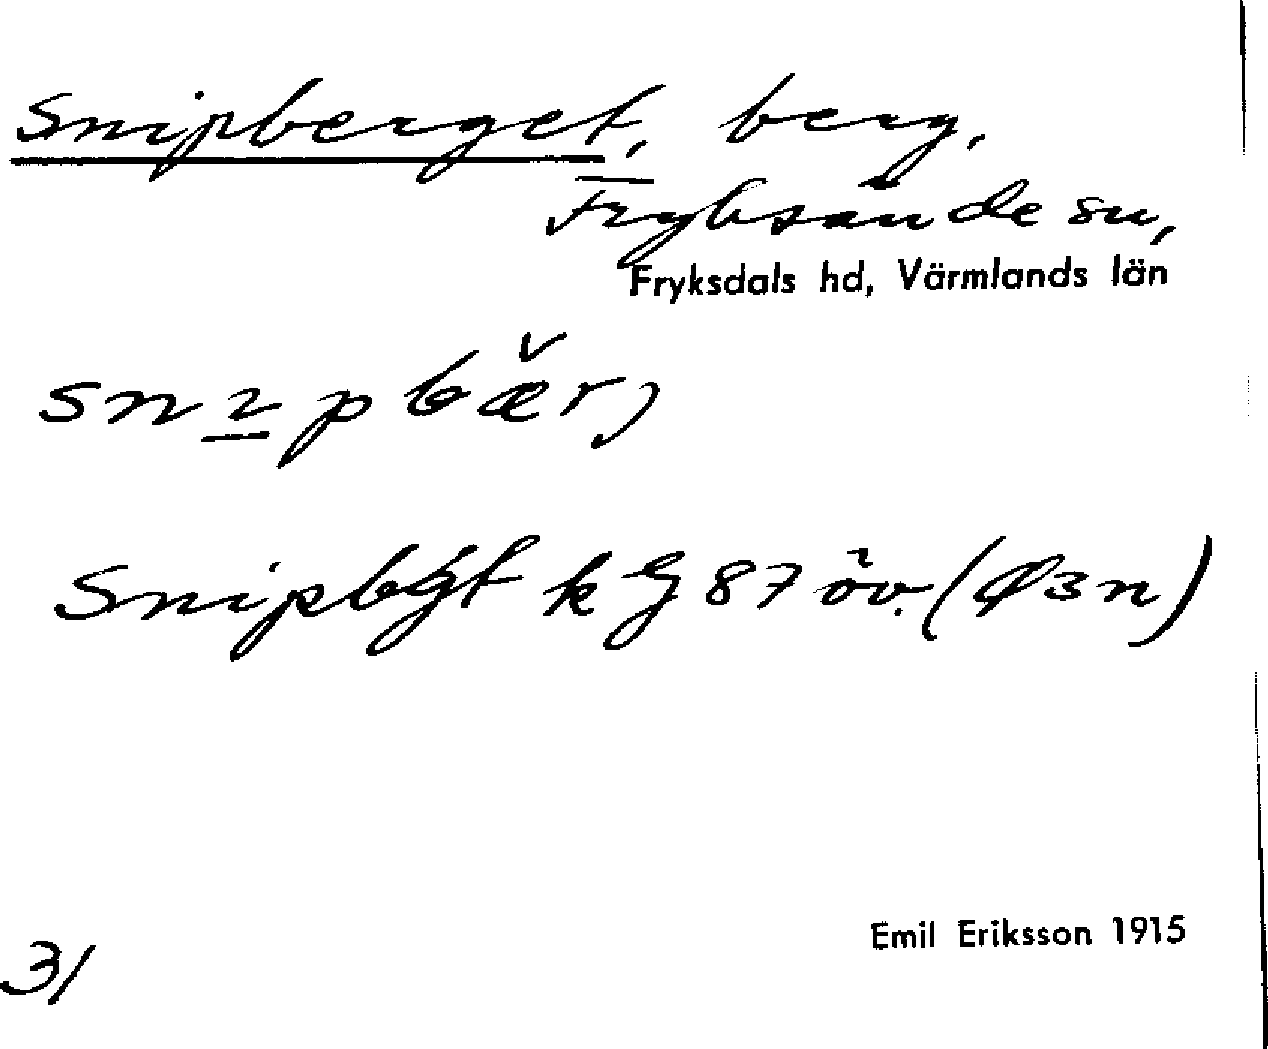 Snipberget, berg,
Fryksände sn,
Fryksdals hd, Värmlands län
Snipbgt k G 87 öv. (d3n)
Emil Eriksson 1915
31